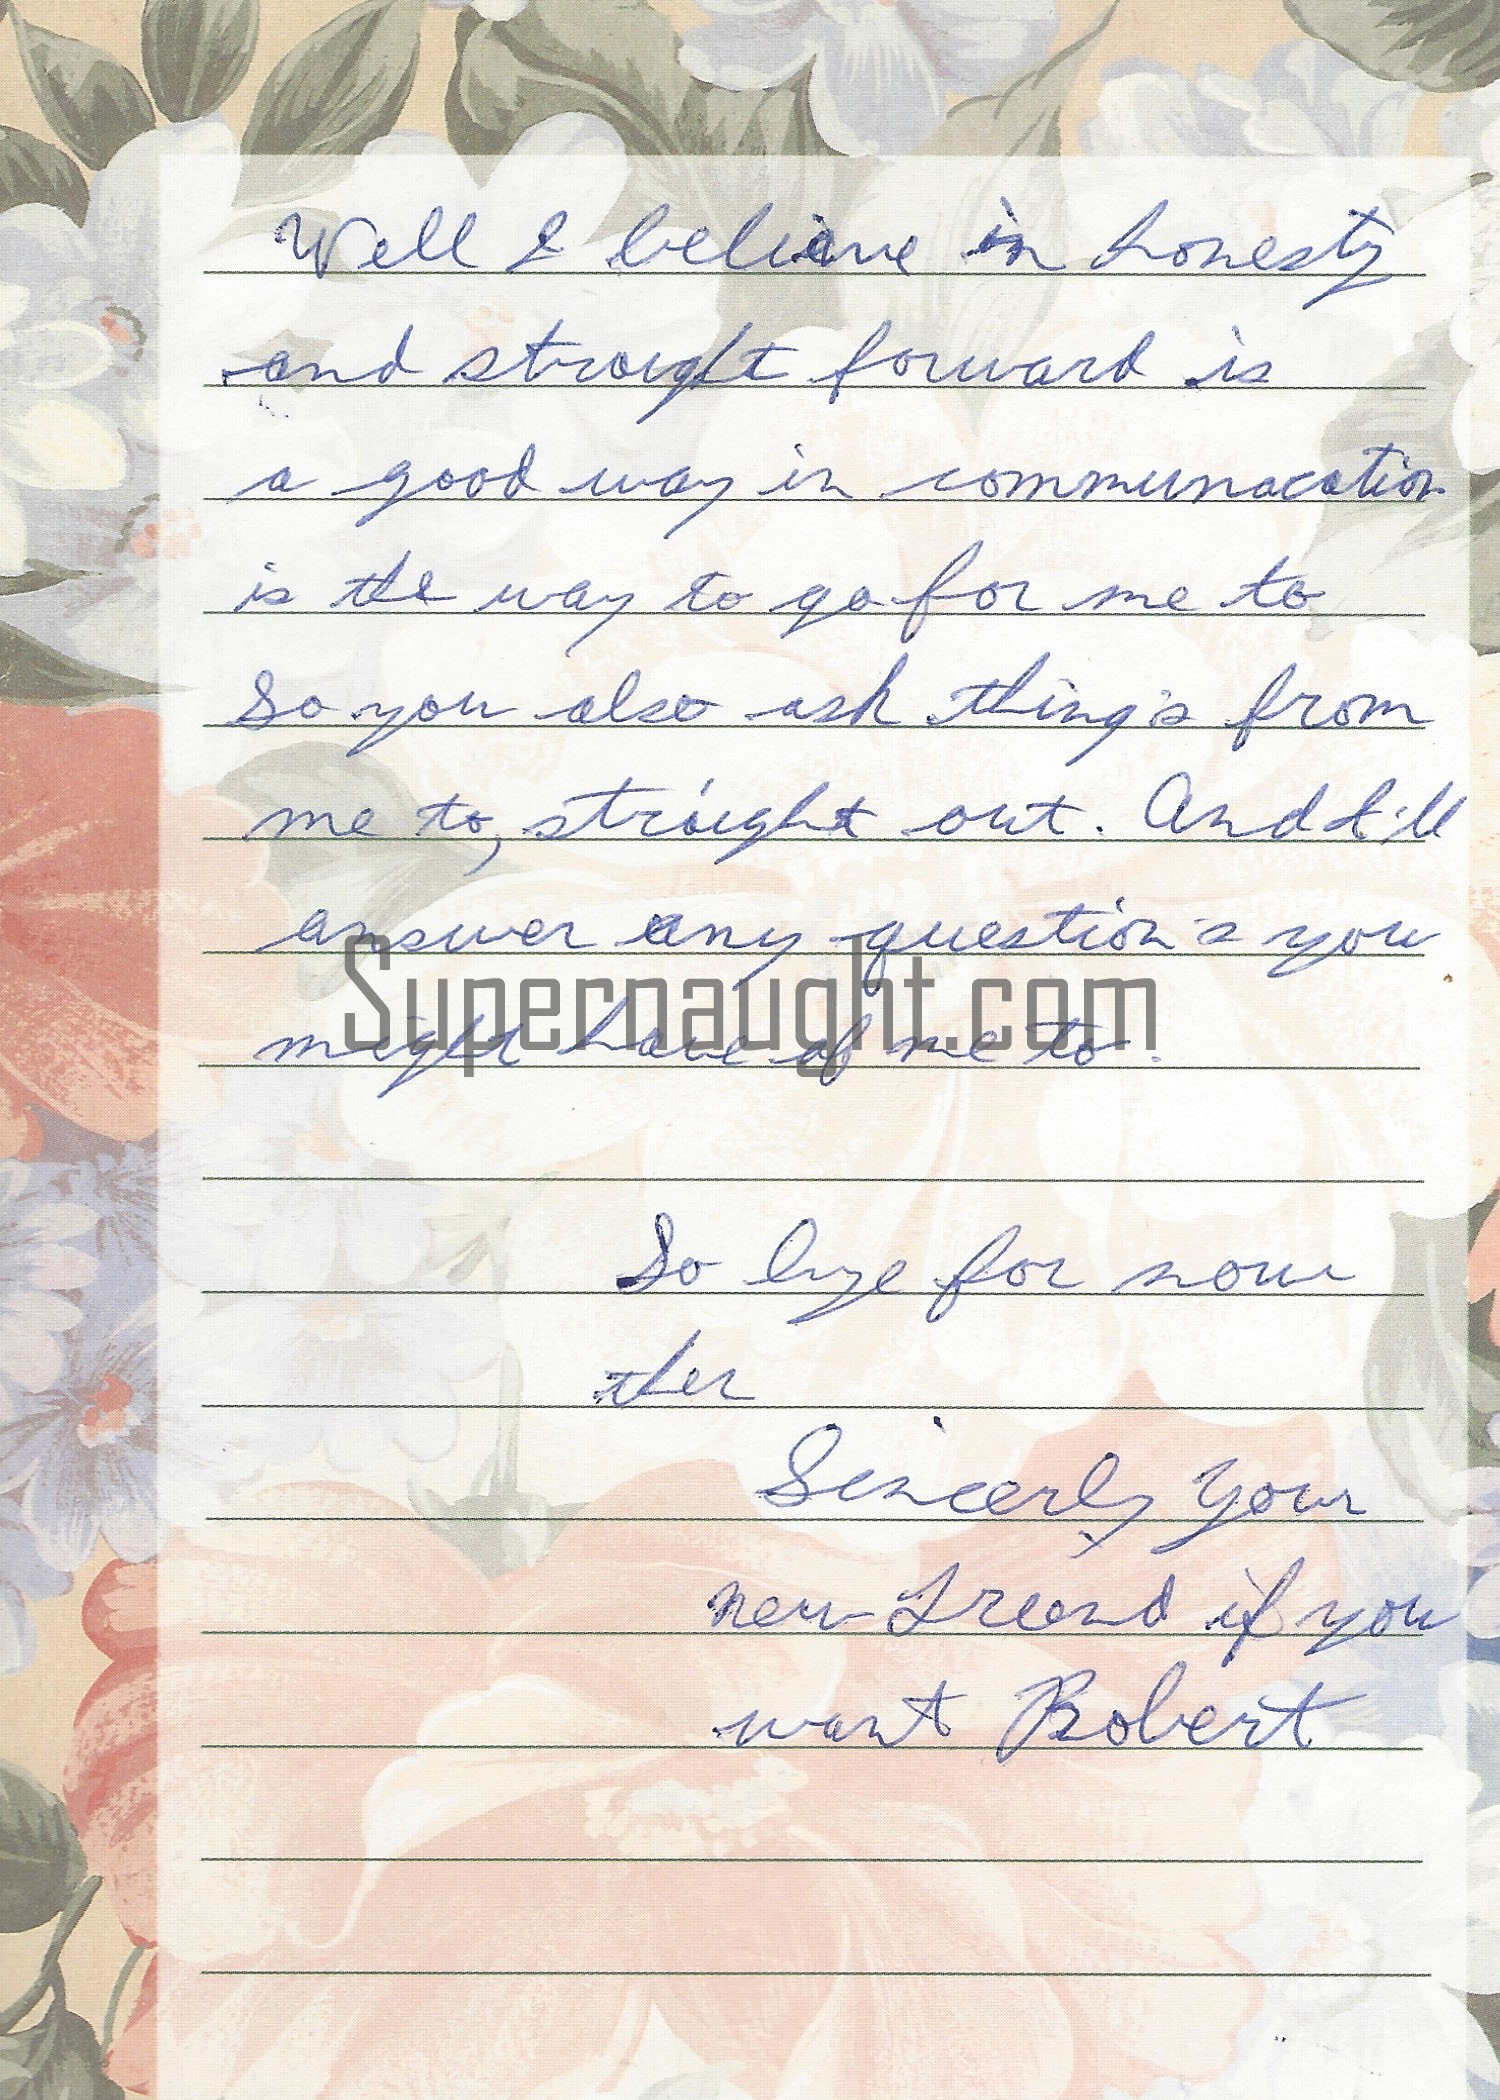 Well I believe in honesty
and straight forward is
a good way in communacation
is the way to go for me to
So you also ask thing's from
me to, straight out. And I'll
answer any question's you
Supernaught.com
might have of me to.
So bye for now
then
Sincerly Your
new Freend if you
want Robert